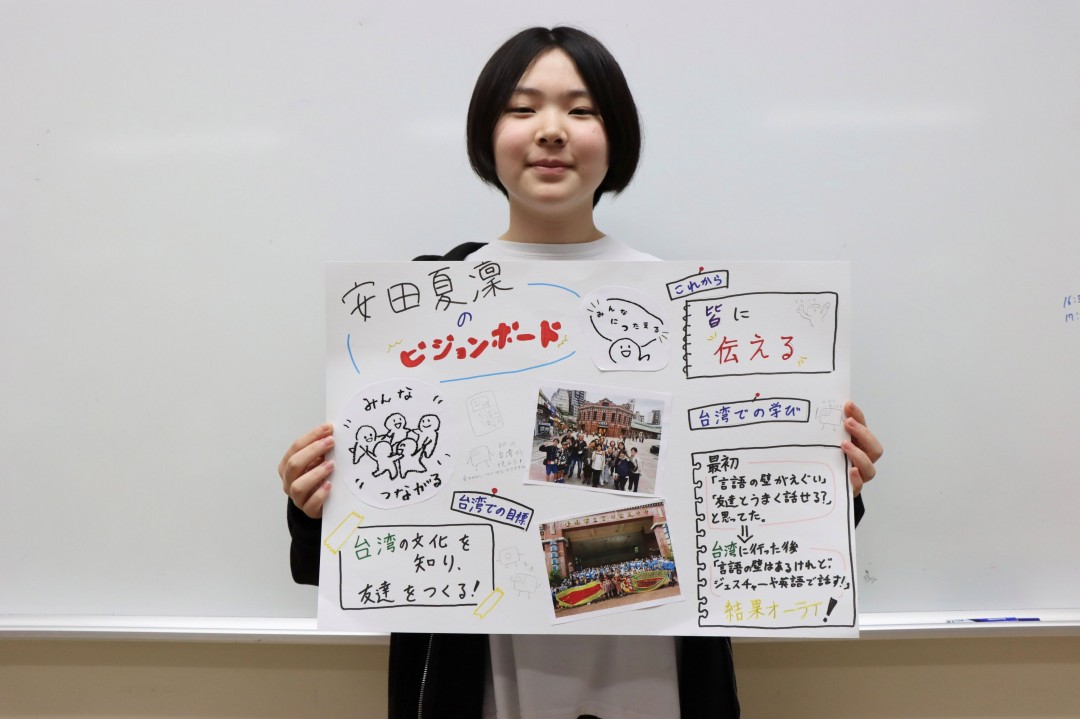 安田夏凛
の
ビジョンボード
みんな
につたえる
これから
皆に
伝える
みんな
つながる
台湾での目標
台湾の文化を
知り、
友達をつくる!
台湾での学び
最初
「言語の壁がえぐい」
「友達とうまく話せる?」
と思ってた。
⇓
台湾に行った後
「言語の壁はあるけれど、
ジェスチャーや英語で話す!」
結果オーライ!